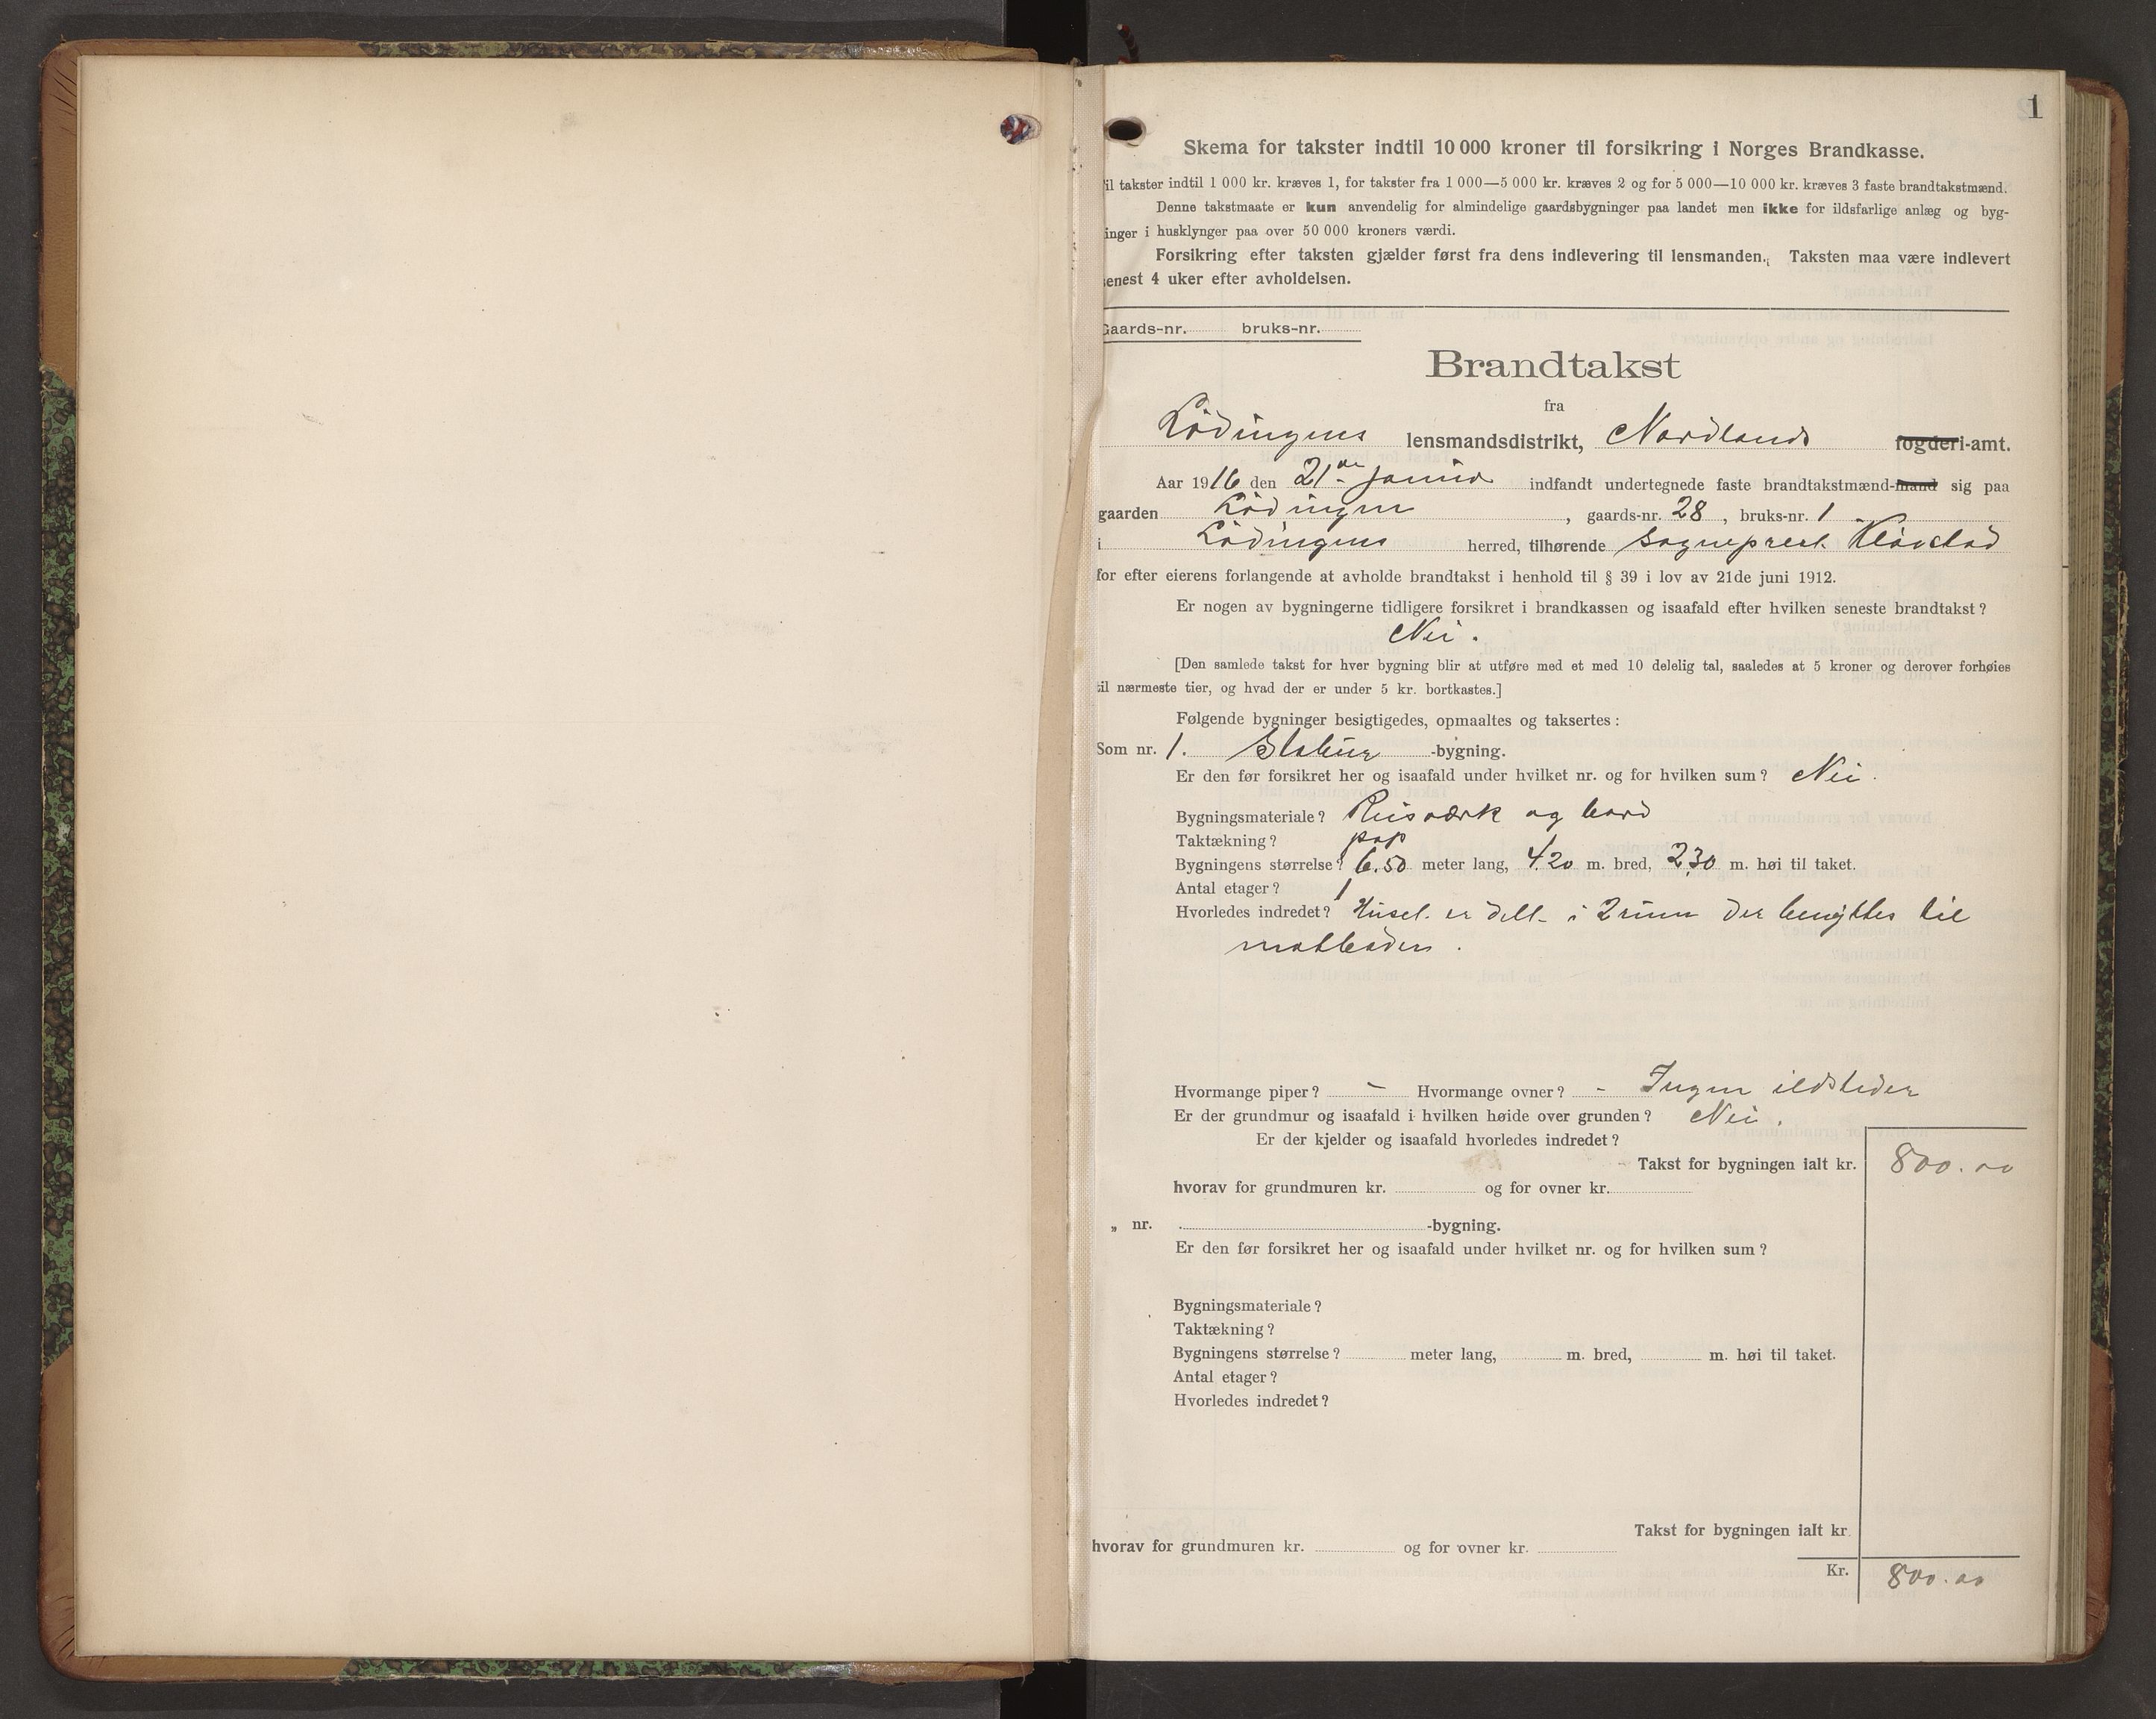 1
Skema for takster indtil 10 000 kroner til forsikring i Norges Brandkasse.
il takster indtil 1 000 kr. kræves 1, for takster fra 1 000—5 000 kr. kræves 2 og for 5 000—10 000 kr. kræves 3 faste brandtakstmænd.
Denne takstmaate er kun anvendelig for almindelige gaardsbygninger paa landet men ikke for ildsfarlige anlæg og byg-
inger i husklynger paa over 50 000 kroners værdi.
Forsikring efter taksten gjælder først fra dens indlevering til lensmanden. Taksten maa være indlevert
enest 4 uker efter avholdelsen.
Gaards-nr. bruks-nr.
Brandtakst
fra
Lödingens lensmandsdistrikt, Nordlands fogderi-amt.
Aar 1916 den 21de indfandt undertegnede faste brandtakstmænd-mand sig paa
gaarden Lödingen, gaards-nr. 28, bruks-nr. 1
i Lödingens herred, tilhørende sogneprest
for efter eierens forlangende at avholde brandtakst i henhold til § 39 i lov av 21de juni 1912.
Er nogen av bygningerne tidligere forsikret i brandkassen og isaafald efter hvilken seneste brandtakst?
Nei.
[Den samlede takst for hver bygning blir at utføre med et med 10 delelig tal, saaledes at 5 kroner og derover forhøies
til nærmeste tier, og hvad der er under 5 kr. bortkastes.]
Følgende bygninger besigtigedes, opmaaltes og taksertes:
Som nr. 1. Stabur -bygning.
Er den før forsikret her og isaafald under hvilket nr. og for hvilken sum? Nei.
Bygningsmateriale? Reisværk og bord
Taktækning? pap
Bygningens størrelse? 6.50 meter lang, 4.20 m. bred, 2.30 m. høi til taket.
Antal etager? 1
Hvorledes indredet? Huset er delt i 2 rum der benyttes til
matboder.
Hvormange piper? - Hvormange ovner? - Ingen ildsteder
Er der grundmur og isaafald i hvilken høide over grunden? Nei.
Er der kjelder og isaafald hvorledes indredet?
Takst for bygningen ialt kr. 800.00
hvorav for grundmuren kr. og for ovner kr.
„ nr. -bygning.
Er den før forsikret her og isaafald under hvilket nr. og for hvilken sum?
Bygningsmateriale?
Taktækning?
Bygningens størrelse? meter lang, m. bred, m. høi til taket.
Antal etager?
Hvorledes indredet?
Takst for bygningen ialt kr.
hvorav for grundmuren kr. og for ovner kr.
Kr. 800.00